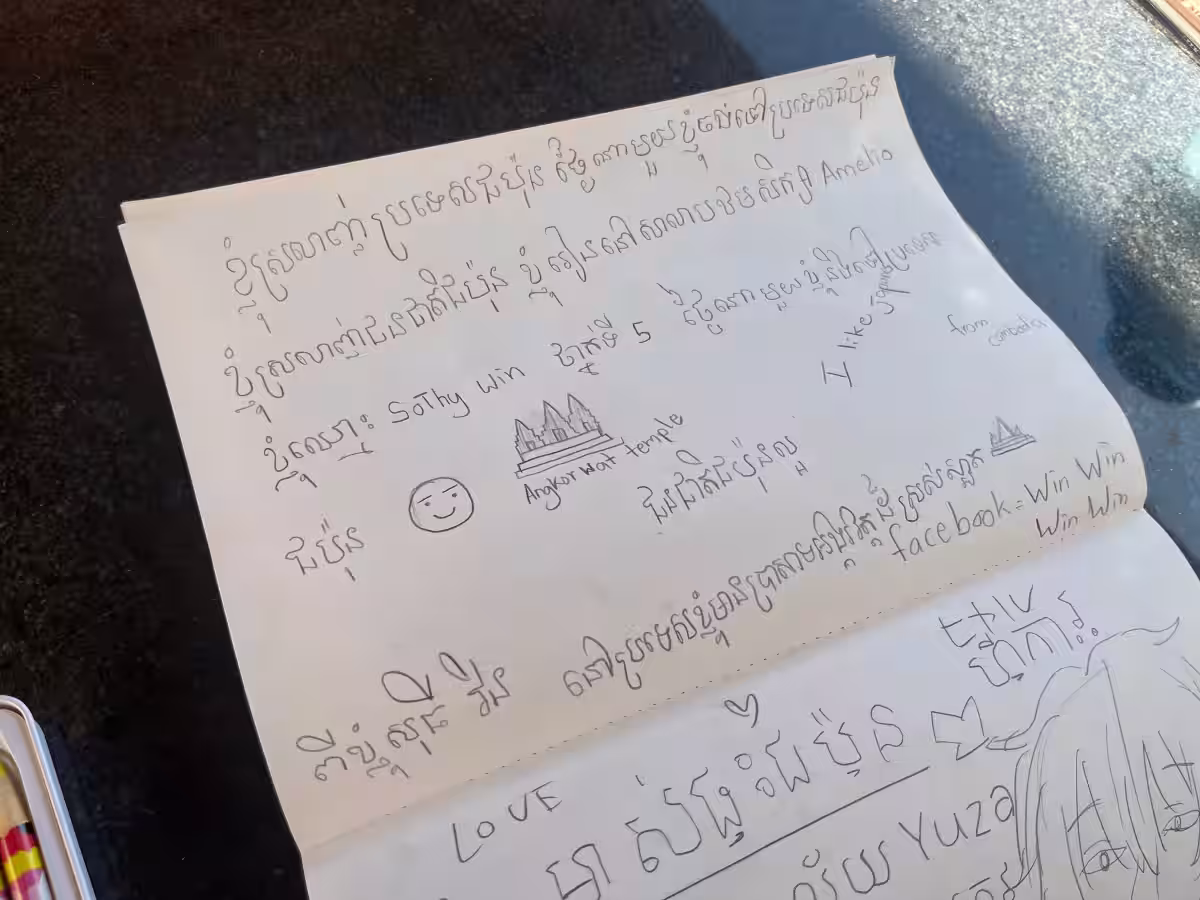 ខ្ញុំស្រលាញ់ប្រទេសជប៉ុន ថ្ងៃណាមួយខ្ញុំចង់ទៅប្រទេសជប៉ុន
ខ្ញុំស្រលាញ់ជនជាតិជប៉ុន ខ្ញុំរៀននៅសាលាបឋមសិក្សា Amelio
ខ្ញុំឈ្មោះ SoThy Win ថ្នាក់ទី 5 ថ្ងៃណាមួយខ្ញុំនឹងទៅប្រទេស
ជប៉ុន
Angkor Wat temple
like japan
from cambodia
ជនជាតិជប៉ុនល្អ
ពីខ្ញុំ សុធី វីន
នៅប្រទេសខ្ញុំមានប្រាសាទ
ដ៏ស្រស់ស្អាត
facebook = Win Win
Win Win
LOVE
ជប៉ុន
Yuza